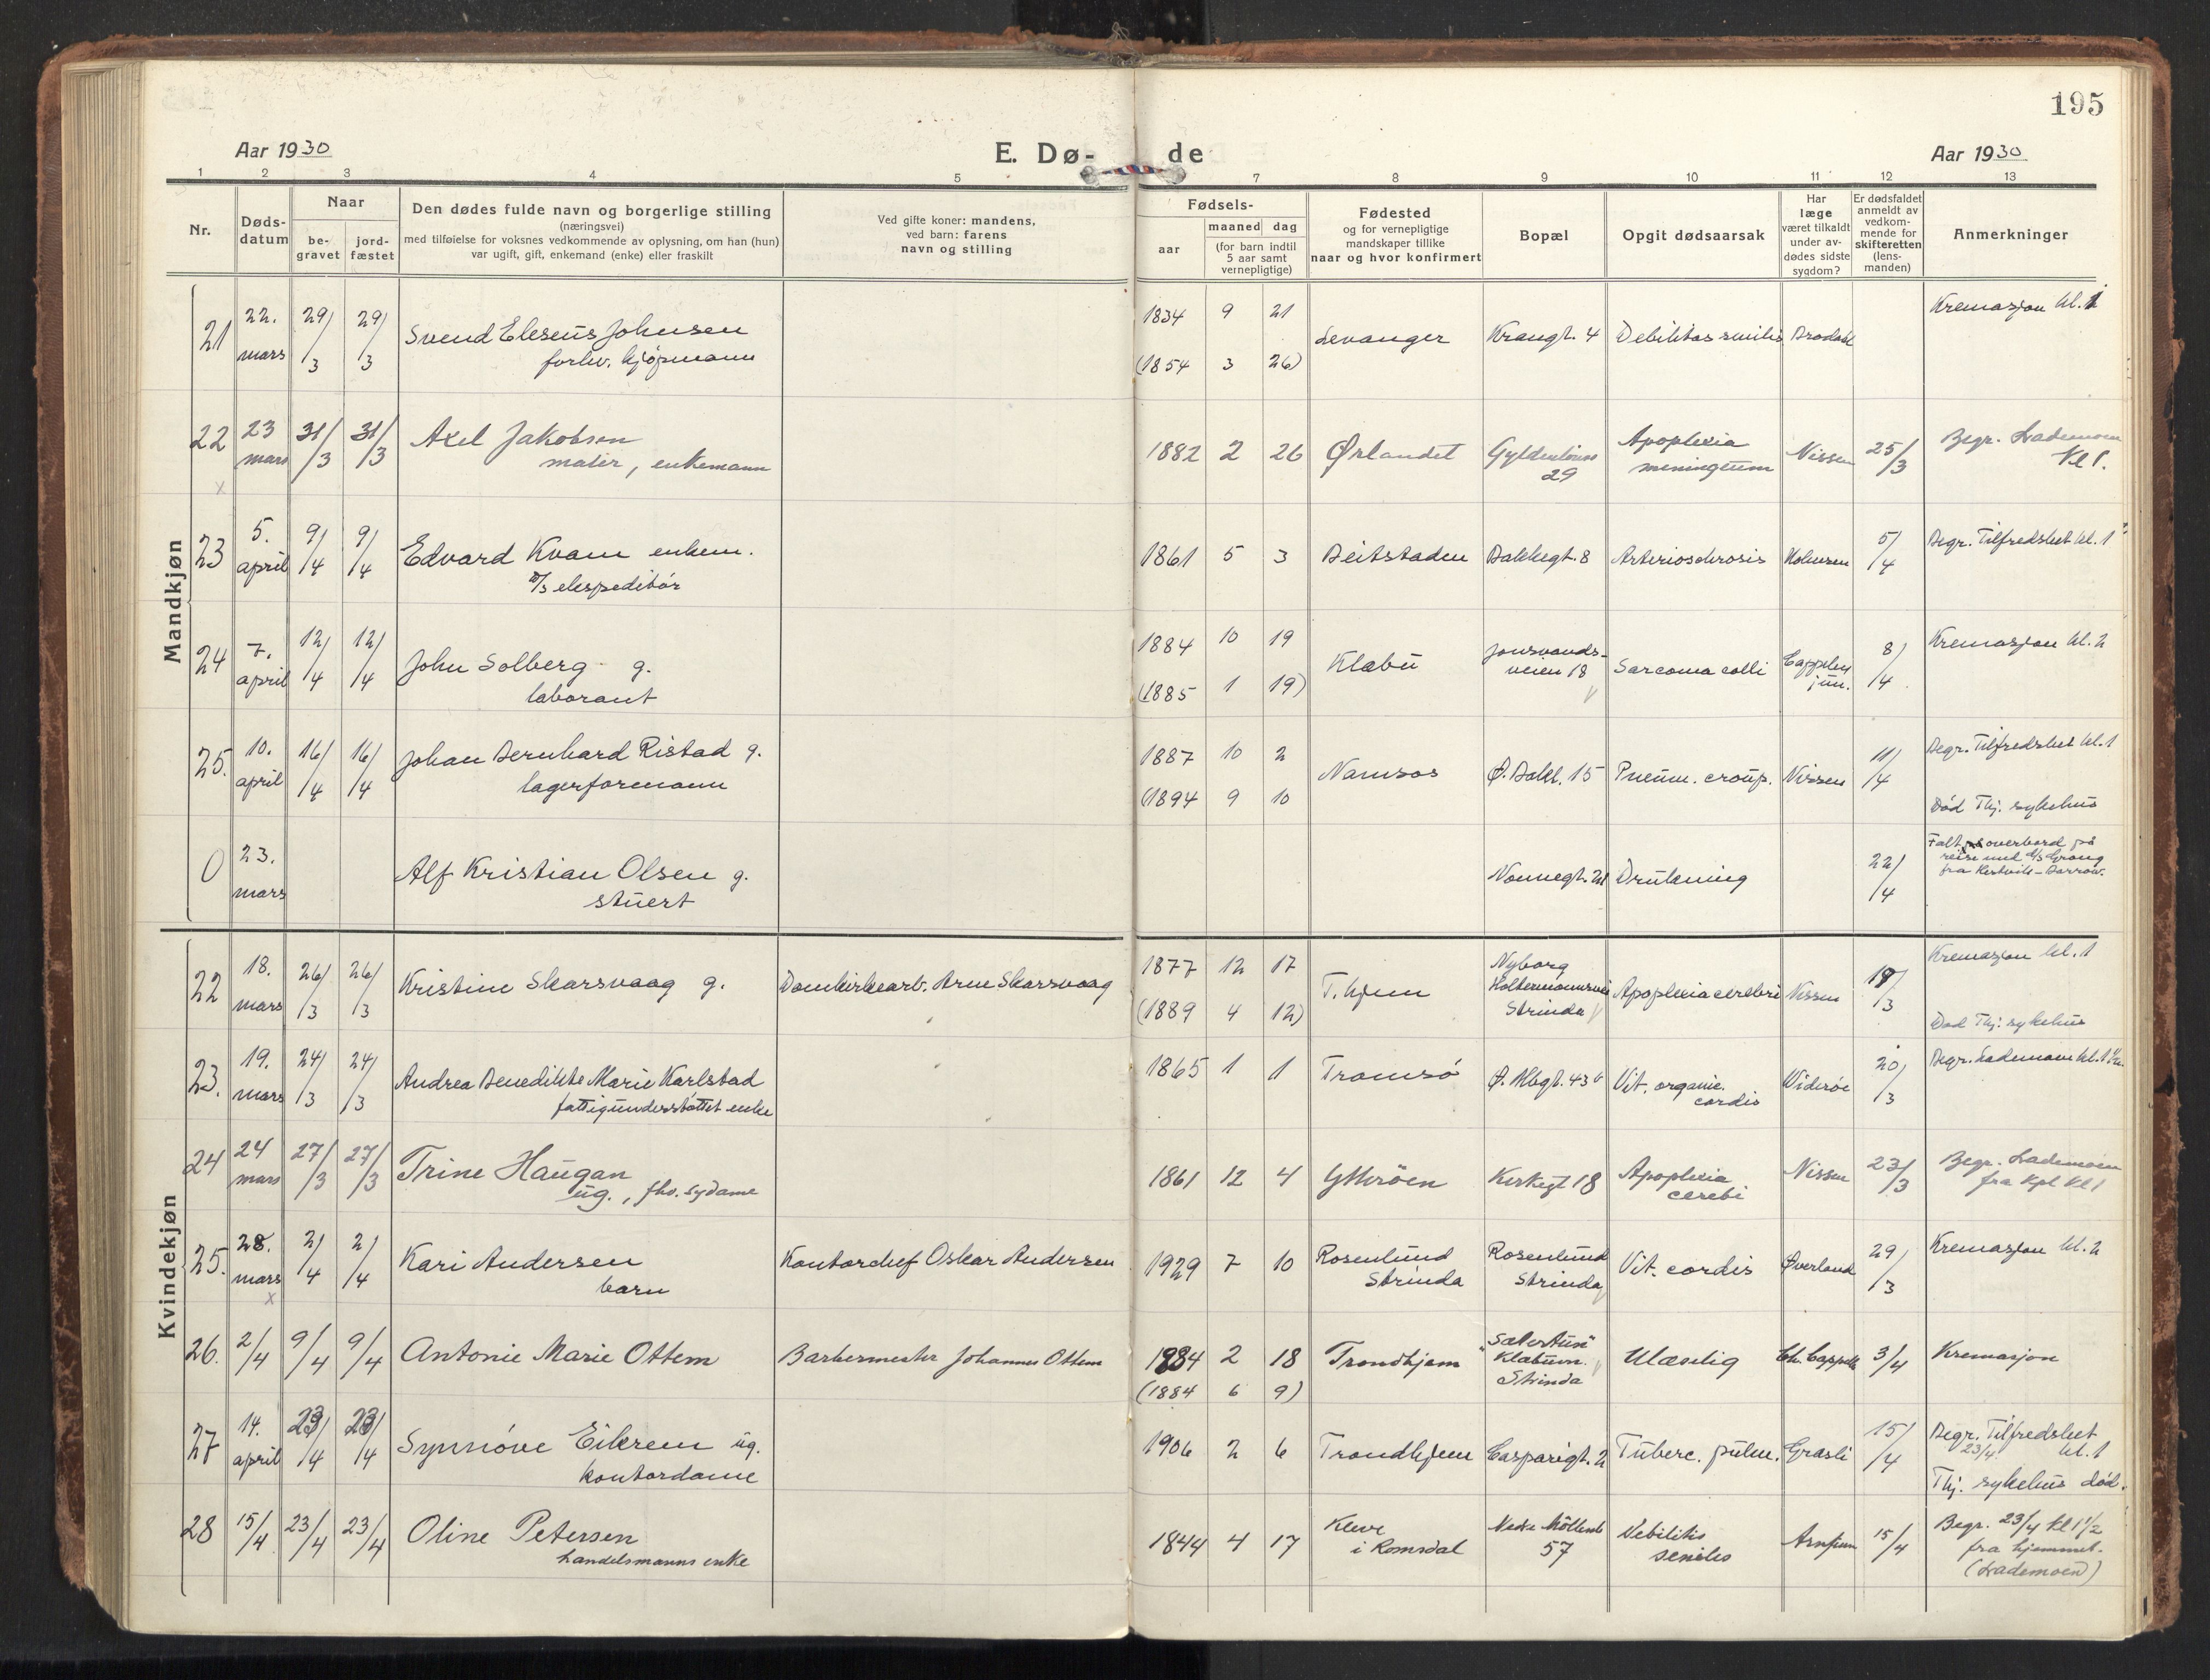 195
Aar 1930
E. Dø- de
Aar 1930
1 2 3 4 5 7 8 9 10 11 12 13
Nr.
Døds-
datum
Naar
be-
gravet
jord-
fæstet
Den dødes fulde navn og borgerlige stilling
(næringsvei)
med tilføielse for voksnes vedkommende av oplysning, om han (hun)
var ugift, gift, enkemand (enke) eller fraskilt
Ved gifte koner: mandens,
ved barn: farens
navn og stilling
Fødsels-
aar
maaned dag
(for barn indtil
5 aar samt
vernepligtige)
Fødested
og for vernepligtige
mandskaper tillike
naar og hvor konfirmert
Bopæl
Opgit dødsaarsak
Har
læge
været tilkaldt
under av-
dødes sidste
sygdom?
Er dødsfaldet
anmeldt av
vedkom-
mende for
skifteretten
(lens-
manden)
Anmerkninger
Mandkjøn
21 22. mars 29/3 29/3 Svend Eleseus Johnsen
forhv. kjøpmann
1834 9 21
(1854 3 26)
Levanger Krangt. 4 Debilitas senilis
Kremasjon kl. 1
22 23 mars 31/3 31/3 Axel Jakobsen
maler, enkemann
1882 2 26 Ørlandet
29
Apoplexia
meningeum
Nissen 25/3
Begr. Lademoen
Kl 1.
23 5. april 9/4 9/4 Edvard Kvam enkem.
D/S ekspeditör
1861 5 3 Beitstaden Bakkegt. 8 Arteriosclerosis Holmsen 5/4
Begr. Tilfredshet kl. 1
24 7. april 12/4 12/4 John Solberg g.
laborant
1884 10 19
(1885 1 19)
Klæbu
Jonsvands-
veien 18
Sarcoma colli
Cappelen
jun.
8/4
Kremasjon kl. 2
25. 10. april 16/4 16/4 Johan Bernhard Ristad g.
lagerformann
1887 10 2
(1894 9 10
Namsos Ø. Bakl. 15 Pneum. croup. Nissen 11/4
Begr. Tilfredshet kl. 1
Död Thj. sykehus
0 23. mars Alf Kristian Olsen g.
stuert
Nonnegt. 21 Drukning 22/4
Falt overbord på
reise med D/S Grong
Kvindekjøn
22 18. mars 26/3 26/3 Kristine Skarsvaag g.
Domkirkearb. Arne Skarsvaag
1877 12 17
(1889 4 12)
T.hjem
Nyborg
Holtermannsvei
Strinda
Apoplexia cerebri Nissen 19/3
Kremasjon kl. 1
Død Thj. sykehus
23. 19. mars 24/3 24/3 Andrea Benedikte Marie Karlstad
fattigunderstöttet enke
1865 1 1 Tromsö Ø. Mbgt. 43
Vit. organic.
cordis
Widerøe 20/3
Begr. Lademoen kl. 1 1/2
24 24 mars 27/3 27/3 Trine Haugan
ug., fhv. sydame
1861 12 4 Ytterøen Kirkegt 18
Apoplexia
cerebi
Nissen 23/3
Begr. Lademoen
fra Kpl Kl 1
25. 28. mars 2/4 2/4 Kari Andersen
barn
Kontorchef Oskar Andersen
1929 7 10
Rosenlund
Strinda
Rosenlund
Strinda
Vit. cordis Øverland 29/3
Kremasjon kl. 2
26. 2/4 9/4 9/4 Antonie Marie Ottem
Barbermester Johannes Ottem
1884 2 18
(1884 6 9)
Trondhjem
Strinda
Ulæselig Chr. Cappelen 3/4
Kremasjon
27 14. april 23/4 23/4 Synnöve Eikrem ug.
kontordame
1906 2 6 Trondhjem Casparigt. 2 Tuberc. pulm. Grasli 15/4
Begr. Tilfredshet
23/4 kl. 1
Thj. sykehus död.
28 15/4 23/4 23/4 Oline Petersen
handelsmanns enke
1844 4 17
Kleve
i Romsdal
Nedre Möllenb
57
Debilitis
senilis
15/4
Begr. 23/4 Kl 1 1/2
fra hjemmet.
(Lademoen)